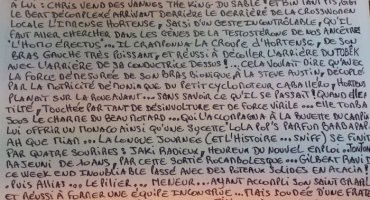 A LUI : CHRIS VEND DES VANNES THE KING DU SABLE ET BIN TANT PIS, GIGI
LE BEAT DÉCONFIRMÉ ARRIVANT DERRIÈRE LA CROSSWOMEN
LOCALE L'INTENSE HORTENSE, SAISI D'UN GESTE INCONTRÔLABLE, QU'IL
FAUT ALLER CHERCHER DANS LES GÈNES DE LA TESTOSTÉRONE DE NOS ANCÊTRES
L'HOMO ÉRECTUS... IL CRAMPONNA LA CROUPE D'HORTENSE, DE SON
BRAS GAUCHE TRÈS GLISSANT, ET RÉUSSI À DÉCOLLER L'ARRIÈRE DU
AVEC L'ARRIÈRE DE SA CONDUCTRICE DESSUS !.. CELA VOULAIT DIRE QU'AVEC
LA FORCE DÉMESURÉE DE SON BRAS BIONIQUE, À LA STEVE AUSTIN, DÉCUPLÉE
PAR LA MOTRICITÉ DÉMONIAQUE DU PETIT CYCLOMOTEUR CABALLERO, HORTENSE
PLANAIT SUR LA ROUE AVANT... SANS SAVOIR CE QU'IL SE PASSAIT ! QUAND ELLE
TILTE, TOUCHÉE PAR TANT DE DÉSINVOLTURE ET DE FORCE VIRILE... ELLE TOMBA
SOUS LE CHARME DU BEAU MOTARD... QUI L'ACCOMPAGNA À LA BUVETTE DU CAMPING
LUI OFFRIR UN MONACO AINSI QU'UNE SUCETTE "LOLA POP'S" PARFUM BARBAPAPA
AH QUE MIAM... LA LONGUE JOURNÉE (ET L'HISTOIRE... SNIFF) SE FINIT
PAR QUATRE SOURIRES : JAKI RADIEUX, HEUREUX DU NOUVEL EMPLOI.. TONTON
RAJEUNI DE 10 ANS, PAR CETTE SORTIE ROCAMBOLESQUE... GILBERT RAVI DU
WEEK END INOUBLIABLE PASSÉ AVEC DES POTEAUX SOLIDES EN ACACIA !
PUIS ALLIAS... LE PILIER... MENEUR... AYANT ACCOMPLI SON SAINT GRAAL
ET RÉUSSI À FORMER UNE ÉQUIPE INCONGRUE... MAIS SOUDÉE D'UNE FRATE